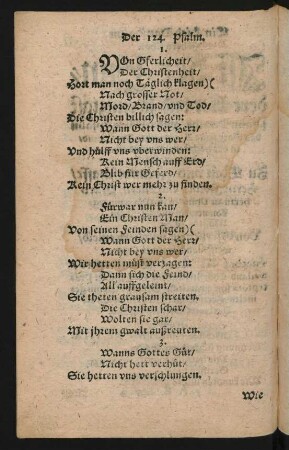 Der 124. Psalm.
1.
VOn Gferlicheit/
Der Christenheit/
Hört man noch Täglich klagen)(
Nach grosser Not/
Mord/Brand/vnd Tod/
Die Christen billich sagen:
Wann Gott der Herr/
Nicht bey vns wer/
Vnd hülff vns vberwinden:
Kein Mensch auff Erd/
Blib für Geferd/
Kein Christ wer mehr zu finden.
2.
Fürwar nun kan/
Ein Christen Man/
Von seinen Feinden sagen)(
Wann Gott der Herr/
Nicht bey vns wer/
Wir hetten müst verzagen:
Dann sich die Feind/
All auffgeleint/
Sie theten grausam streiten.
Die Christen schar/
Wolten sie gar/
Mit jhrem gwalt außreuten.
3.
Wanns Gottes Güt/
Nicht hett verhüt/
Sie hetten vns verschlungen.
Wie